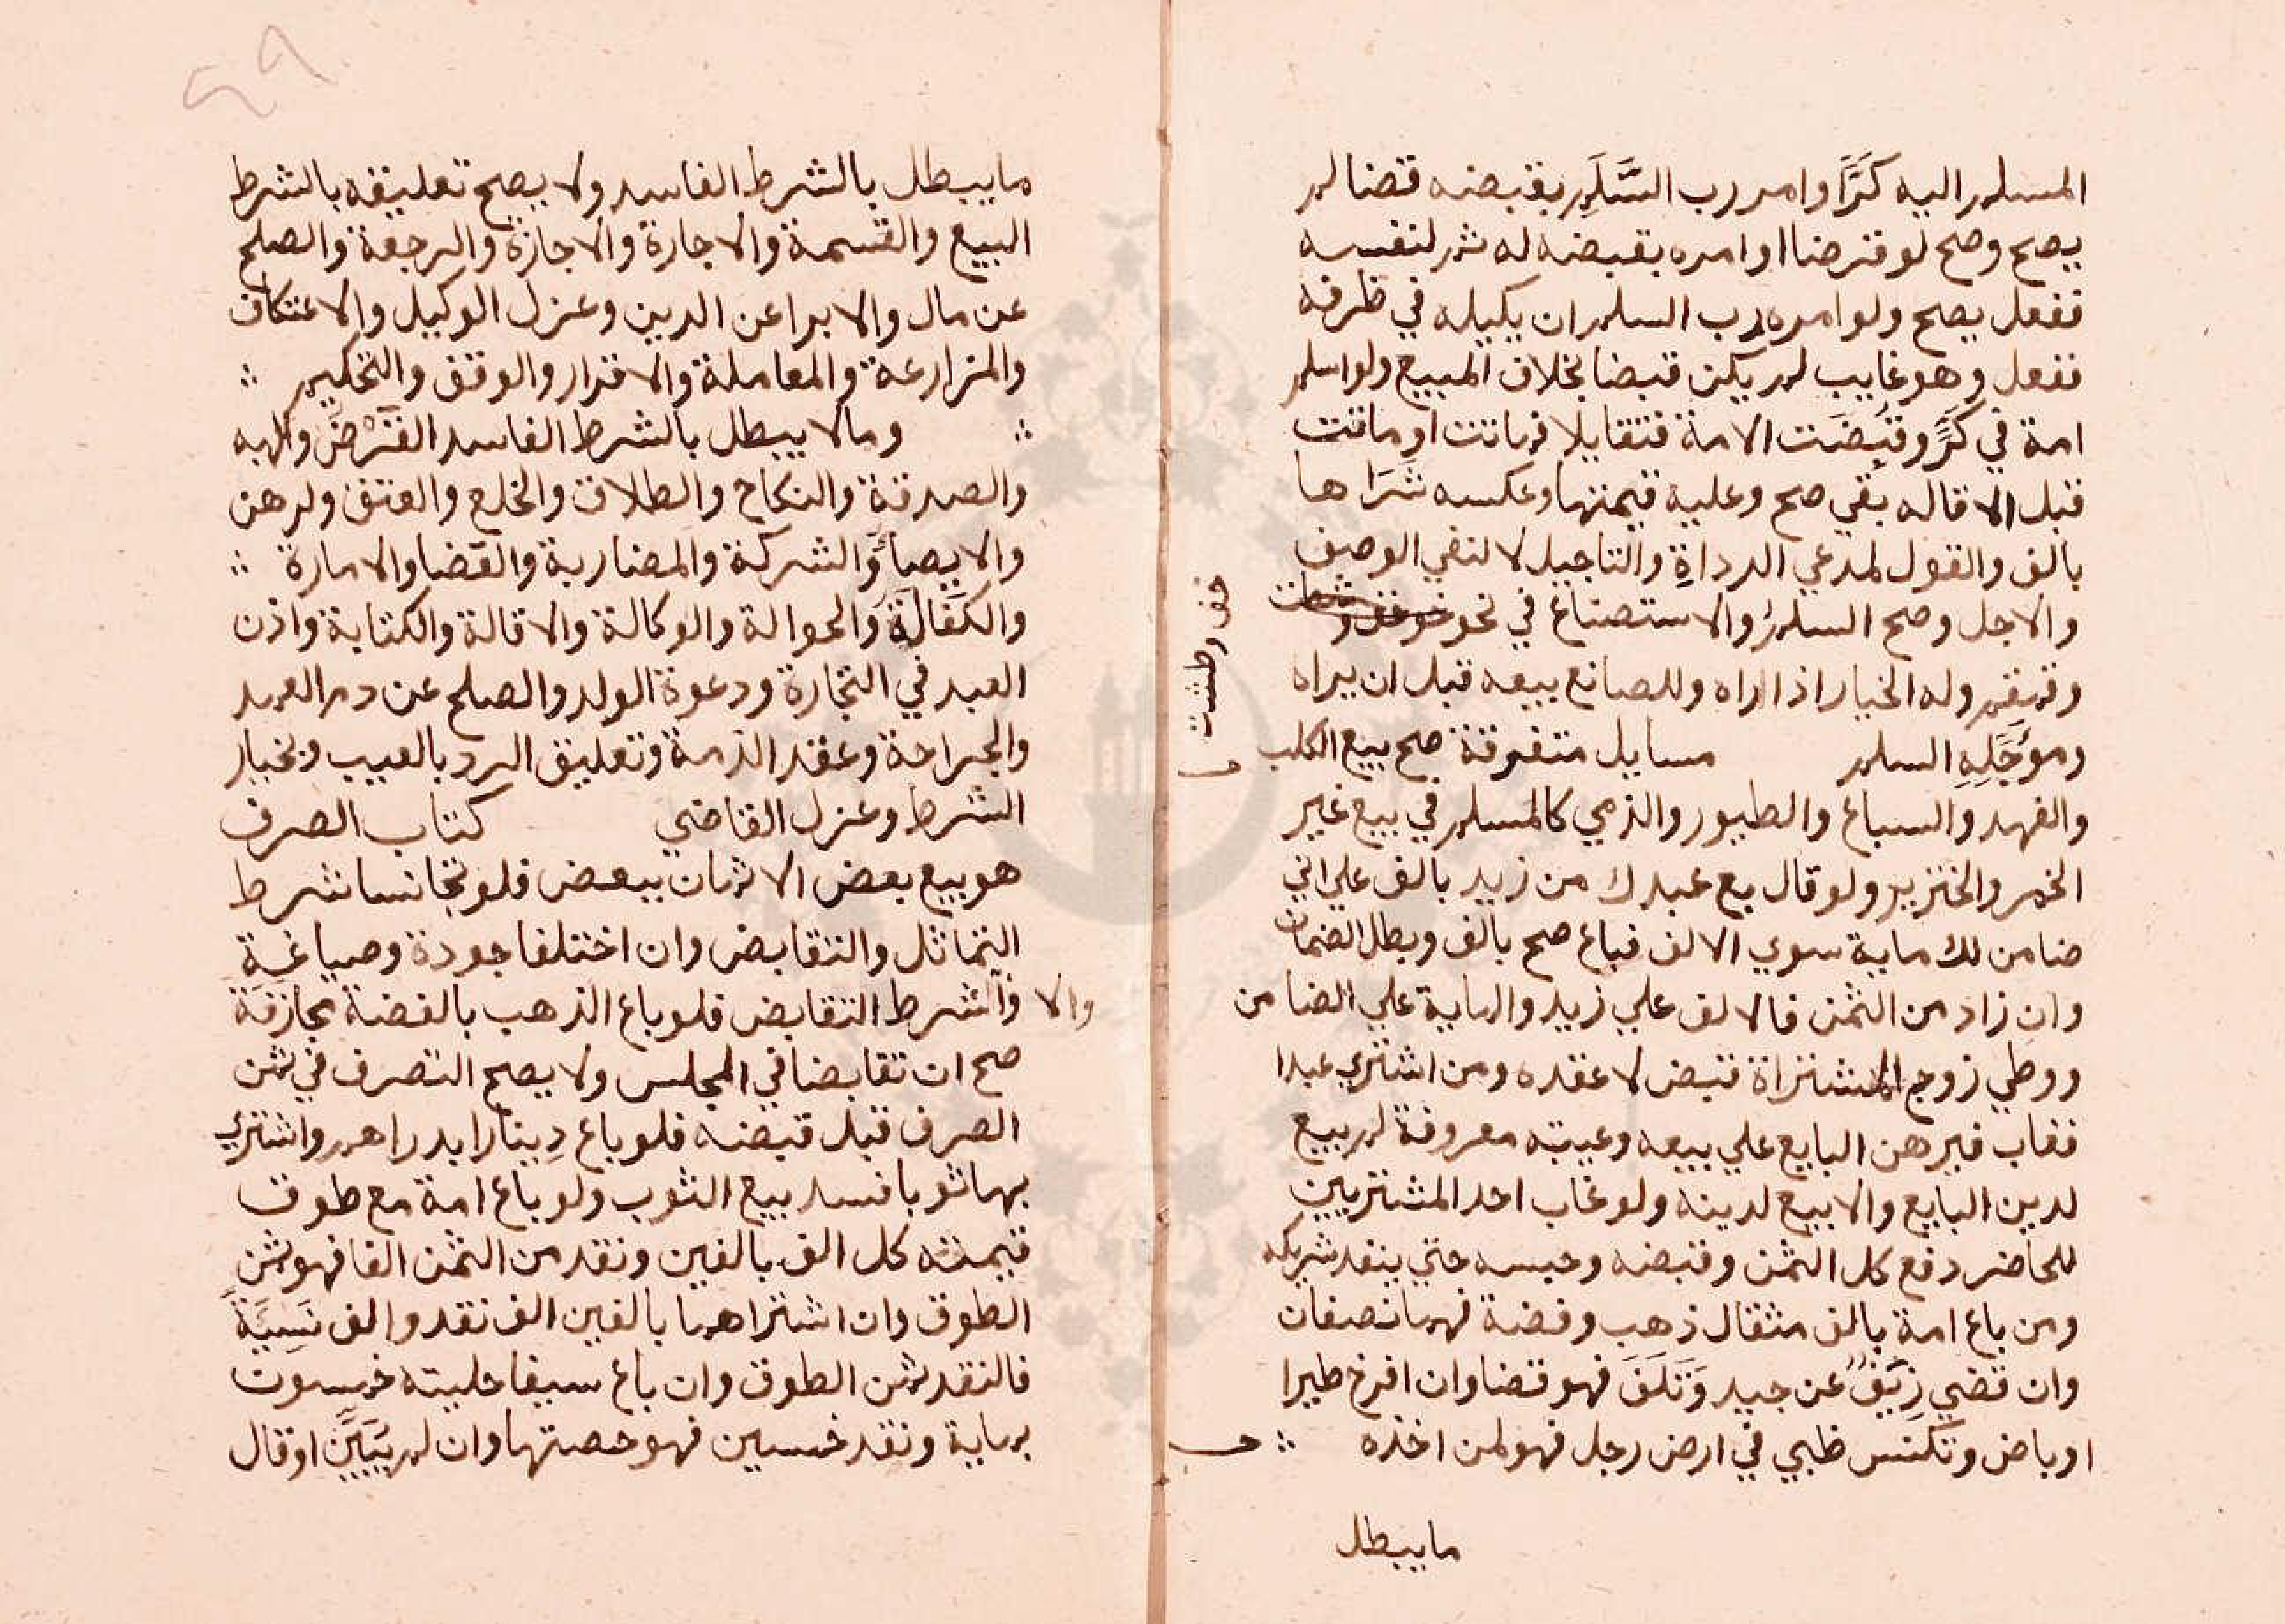 المسلم اليه كَرًّا وامر رب السَّلَمِ بقبضه قضا لم
يصح وصح لو قرضا او امره بقبضه له ثم لنفسه
ففعل يصح ولو امره رب السلم ان يكيله في ظرفه
ففعل وهو غايب لم يكن قبضا بخلاف المبيع ولو اسلم
امة في كَرًّ وقبُضَت الامة فتقايلا فماتت او ماتت
قبل الاقاله بقي صح وعليه قيمتها وعكسه شَرَاها
بالف والقول لمدعي الرداةِ والتاجيل لا لنفي الوصف
والاجل وصح السلم والاستصناع في نحو
خف وطشت
وقمقم وله الخيار اذا راه وللصانع بيعه قبل ان يراه
ومؤَجَّلِهِ السلم مسايل متفرقة صح بيع الكلب
والفهد والسباع والطيور والذمي كالمسلم في بيع غير
الخمر والخنزير ولو قال بع عبدك من زيد بالف علي اني
ضامن لك ماية سوي الالف فباع صح بالف وبطل الضمان
وان زاد من الثمن فالالف علي زيد والماية علي الضامن
ووطي زوج المشتراة قبض لا عقده ومن اشتري عبدا
فغاب فبرهن البايع علي بيعه وغيبته معروفة لم يبيع
لدين البايع والا بيع لدينه ولو غاب احد المشتريين
للحاضر دفع كل الثمن وقبضه وحبسه حتي ينقد شريكه
ومن باع امة بالف مثقال ذهب وفضة فهما نصفان
وان قضي زِيَفٌ عن جيد وَتَلَفَ فهو قضا وان افرخ طيرا
او باض وتكنس ظبي في ارض رجل فهو لمن اخذه
ما يبطل
ما يبطل بالشرط الفاسد ولا يصح تعليقه بالشرط
البيع والقسمة والاجارة والاجازة والرجعة والصلح
عن مال والابرا عن الدين وعزل الوكيل والاعتكاف
والمزارعة والمعاملة والاقرار والوقف والتحكيم
وما لا يبطل بالشرط الفاسد القَرْضُ والهبه
والصدقة والنكاح والطلاق والخلع والعتق ولرهن
والايصاُ والشركة والمضاربة والقضا والامارة
والكَفَالَةَ والحوالة والوكالة والاقالة والكتابة واذن
العبد في التجارة ودعوة الولد والصلح عن دم العمد
والجراحة وعقد الذمة وتعليق الرد بالعيب وبخيار
الشرط وعزل القاضي كتاب الصرف
هو بيع بعض الاثمان ببعض فلو تجانسا شرط
التماثل والتقابض وان اختلفا جودة وصياغة
والا شرط التقابض فلو باع الذهب بالفضة مجازفة
صح ان تقابضا في المجلس ولا يصح التصرف في ثمن
الصرف قبل قبضه فلو باع دِينارا بدراهم واشتري
بها ثوبا فسد بيع الثوب ولو باع امة مع طوق
قيمته كل الف بالفين ونقد من الثمن الفا فهو ثمن
الطوق وان اشتراهما بالفين الف نقد والف نَسِيَةً
فالنقد ثمن الطوق وان باع سيفا حليته خمسون
بماية ونقد خمسين فهو حصتها وان لم يُبَيَّنَ او قال